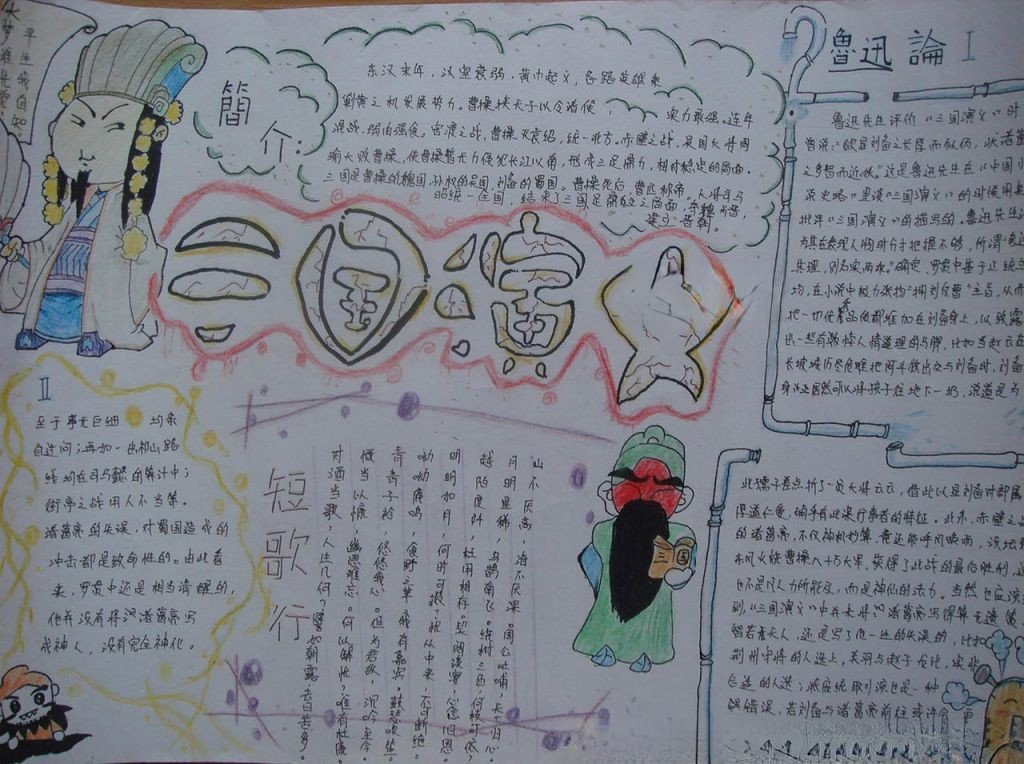 大梦谁先觉
平生我自知
簡介:
东汉末年，汉室衰弱，黄巾起义，各路英雄乘
剿黄之机发展势力。曹操挟天子以令诸侯，实力最强。连年
混战，弱肉强食。官渡之战，曹操灭袁绍，统一北方。赤壁之战，吴国大将周
瑜大败曹操，使曹操暂无力侵犯长江以南，形成三足鼎力，相对稳定的局面。
三国是曹操的魏国，孙权的吴国，刘备的蜀国。曹操死后，曹丕称帝，大将司马
昭统一全国，结束了三国足鼎立之局面，
建立晋朝。
三国演义
魯迅論 I
鲁迅先生评价《三国演义》时
曾说："欲显刘备之长厚而似伪，状诸
之多智而近妖。"这是鲁迅先生在《中国小
说史略》里谈《三国演义》的时候用来
批评《三国演义》的描写的。鲁迅先生
为其在表现人物时分寸把握不够，所谓
确定，罗贯中基于正统立
场，在小说中极力讴扬"拥刘反曹"主旨，从而
把一切优秀品质都堆加在刘备身上，以致露
出一些有教悖人情道理的马脚，比如当赵云在
长坂坡历尽危难把阿斗救出交与刘备时，刘备
身以上居然可以将孩子在地下一扔，说道是为
此孺子差点折了一员大将云云，借此以显刘备对部属
厚道仁爱，确乎有此果行事者的特征。此外，赤壁之战
的诸葛亮，不仅神机妙算，竟还能呼风唤雨，设坛
东风火烧曹操八十万大军，获得了此战的最后胜利，这
也不是凡人力所能及，而是神仙的法力。当然也应该
到，《三国演义》中并未将诸葛亮写得算无遗策
智若青天人，还是写了他一些的失误的，比如
荆州守将的人选上，关羽与赵子龙比，实非
合适的人选；
误错误，若刘备与诸葛亮前往
II
至于事无巨细 均亲
自过问；再如一出祁山路
线均在司马懿的算计中；
街亭之战用人不当等。
诸葛亮的失误，对蜀国造成的
冲击都是致命性的。由此看
来，罗贯中还是相当清醒的，
他并没有将诸葛亮写
成神人，没有完全神化。
短歌行
对酒当歌，人生几何？譬如朝露，去日苦多。
慨当以慷，幽思难忘。何以解忧，唯有杜康。
青青子衿，悠悠我心。但为君故，沉吟至今。
呦呦鹿鸣，食野之苹。我有嘉宾，鼓瑟吹笙。
明明如月，何时可掇？忧从中来，不可断绝。
越陌度阡，枉用相存。契阔谈讌，心念旧恩。
月明星稀，乌鹊南飞。绕树三匝，何枝可依？
山不厌高，海不厌深。周公吐哺，天下归心。
三国